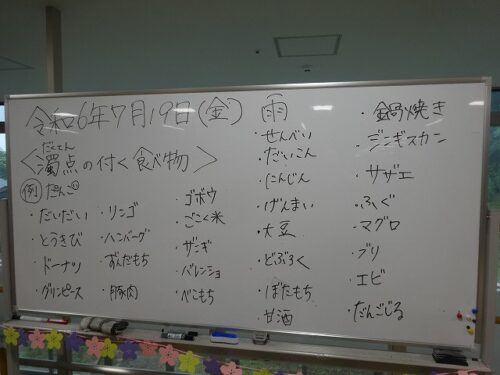 令和6年7月19日(金) 雨
<濁点の付く食べ物>
だくてん
例 だんご
・だいだい
・とうきび
・ドーナツ
・グリンピース
・リンゴ
・ハンバーグ
・ずんだもち
・豚肉
・ゴボウ
・ごこく米
・ザンギ
・バレンショ
・べこもち
・せんべい
・だいこん
・にんじん
・げんまい
・大豆
・どぶろく
・ぼたもち
・甘酒
・鍋焼き
・ジンギスカン
・サザエ
・ふぐ
・マグロ
・ブリ
・エビ
・だんごじる